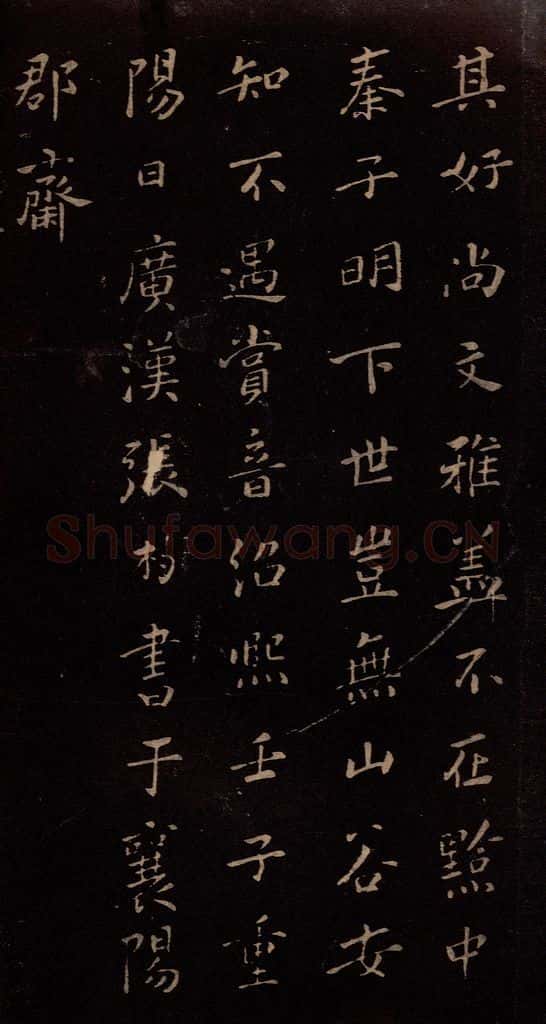 其好尚文雅蓋不在黔中
秦子明下世豈無山谷安
知不遇賞音紹熙壬子重
陽日廣漢張杓書于襄陽
郡齋
Shufawang.CN